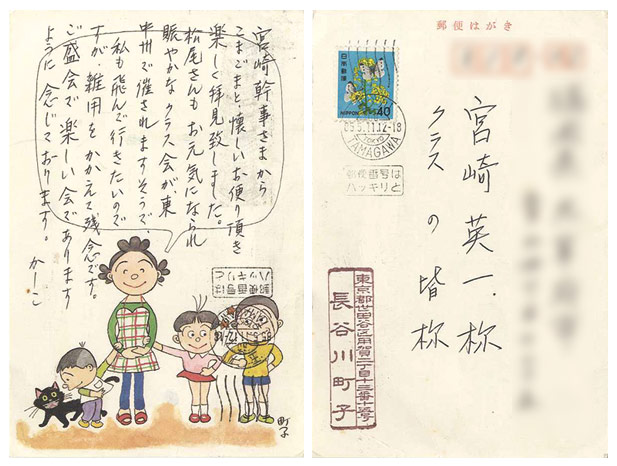 宮崎幹事さまから
こまごまと懐しいお便り頂き
楽しく拝見致しました。
松尾さんもお元気になられ
賑やかなクラス会が東
中州で催されますそうで、
私も飛んで行きたいので
すが、雑用をかかえて残念です。
ご盛会で楽しい会であります
ように念じております。
かーこ
郵便番号は
ハッキリと
町子
郵便はがき
日本郵便
NIPPON 40
85.5.11.12-18
TOKYO
TAMAGAWA
郵便番号は
ハッキリと
宮崎英一称
クラスの皆称
東京都世田谷区用賀一丁目十三番
長谷川町子